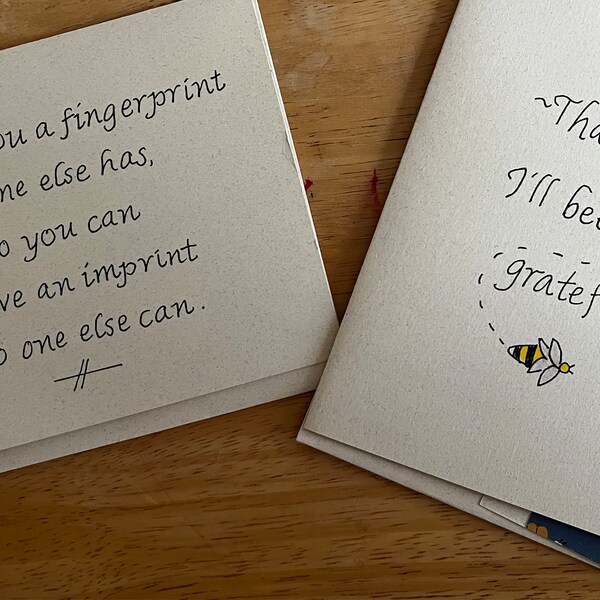 ou a fingerprint
ne else has,
o you can
ve an imprint
o one else can.
~Tha
I'll be
gratef